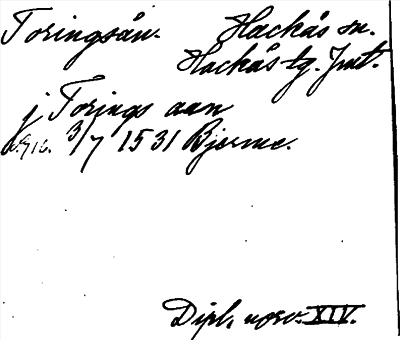 Toringsån. Hackås sn.
Hackås tg. Jmt.
j Torings aan
3/7 1531 Bjerme.
Dipl. norv. XIV.